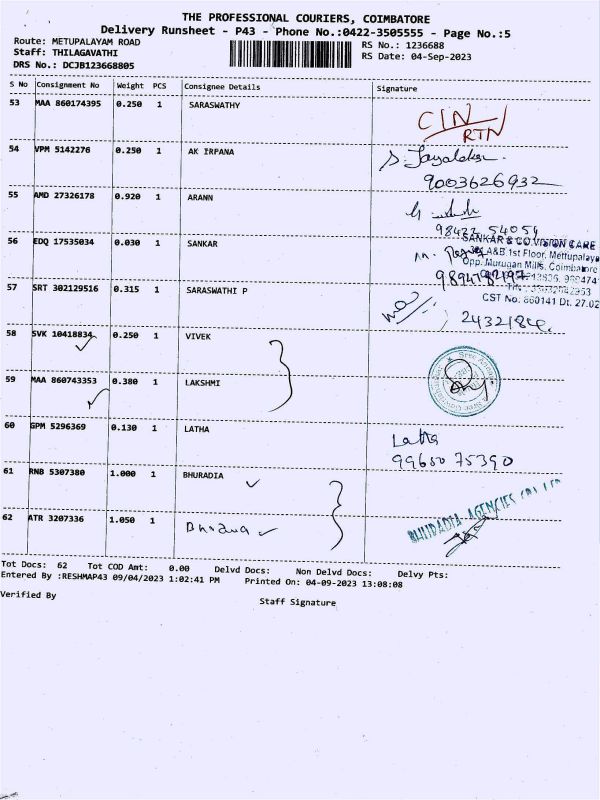 THE PROFESSIONAL COURIERS, COIMBATORE
Delivery Runsheet - P43 - Phone No.:0422-3505555 - Page No.:5
Route: METUPALAYAM ROAD
RS No.: 1236688
Staff: THILAGAVATHI
RS Date: 04-Sep-2023
DRS No.: DCJB123668805
S No Consignment No Weight PCS Consignee Details Signature
53 MAA 860174395 0.250 1 SARASWATHY
CIN
RTN
54 VPM 5142276 0.250 1 AK IRPANA
9003626932
55 AMD 27326178 0.920 1 ARANN
98422 54054
56 EDQ 17535034 0.030 1 SANKAR
SANKAR & CO.VISION CARE
A&B 1st Floor, Mettupalaya
Opp. Murugan Mills, Coimbatore
57 SRT 302129516 0.315 1 SARASWATHI P
CST No: 860141 Dt. 27.02
58 SVK 10418834 0.250 1 VIVEK
59 MAA 860743353 0.380 1 LAKSHMI
60 GPM 5296369 0.130 1 LATHA
Latha
99650 75390
61 RNB 5307380 1.000 1 BHURADIA
62 ATR 3207336 1.050 1
BHURADIA AGENCIES
Tot Docs: 62 Tot COD Amt: 0.00 Delvd Docs: Non Delvd Docs: Delvy Pts:
Entered By :RESHMAP43 09/04/2023 1:02:41 PM Printed On: 04-09-2023 13:08:08
Verified By
Staff Signature